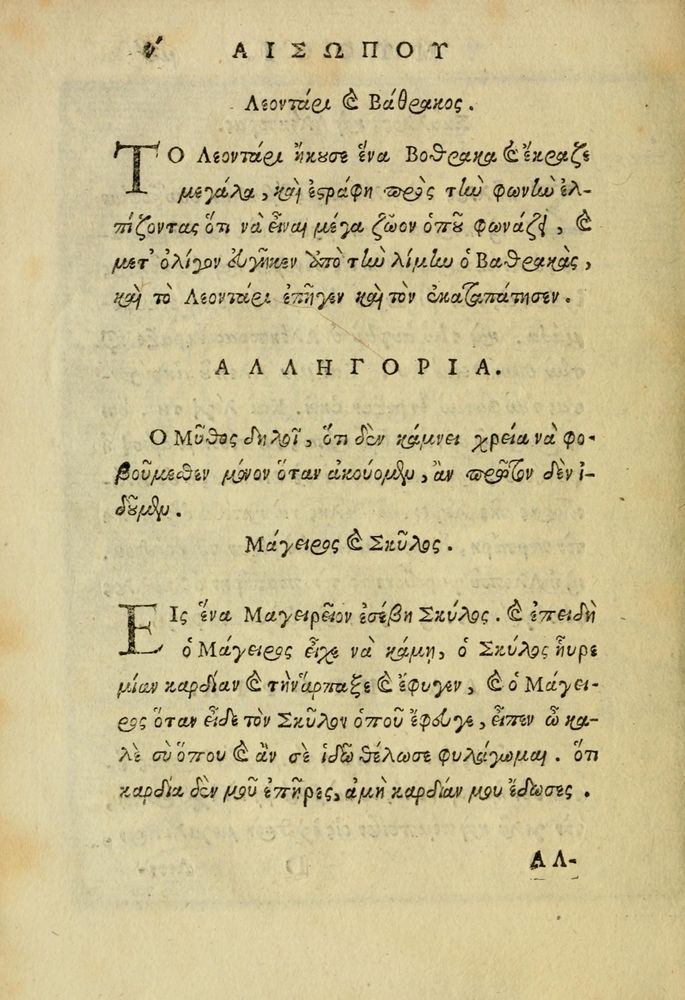 ν΄ ΑΙΣΩΠΟΥ
Λεοντάρι ϗ Βάθρακος.
ΤΟ Λεοντάρι ἤκουσε ἕνα Βοθρακα ϗ ἔκραζε
μεγάλα, καὶ ἐστράφη πρὸς τὴν φωνὴν ἐλ-
πίζοντας ὅτι νὰ εἶναι μέγα ζῶον ὁποῦ φωνάζει, ϗ
μετ' ὀλίγον εὐγῆκεν ἀπὸ τὴν λίμνην ὁ Βαθρακὰς,
καὶ τὸ Λεοντάρι ἐπῆγεν καὶ τὸν ἐκαταπάτησεν.
ΑΛΛΗΓΟΡΙΑ.
Ο Μῦθος δηλοῖ, ὅτι δὲν κάμνει χρεία νὰ φο-
βούμεθεν μόνον ὅταν ἀκούομεν, ἂν πρῶτον δὲν ἰ-
δοῦμεν.
Μάγειρος ϗ Σκῦλος.
ΕΙς ἕνα Μαγειρεῖον ἐσέβη Σκύλος. ϗ ἐπειδὴ
ὁ Μάγειρος εἶχε νὰ κάμη, ὁ Σκύλος ηὗρε
μίαν καρδίαν ϗ τὴν ἅρπαξε ϗ ἔφυγεν, ϗ ὁ Μάγει-
ρος ὅταν εἶδε τὸν Σκῦλον ὁποῦ ἔφευγε, εἶπεν ὦ κα-
λὲ σὺ ὅπου ϗ ἂν σὲ ἰδῶ θέλω σε φυλάγωμαι. ὅτι
καρδία δὲν μοῦ ἐπῆρες, ἀμὴ καρδίαν μου ἔδωσες.
ΑΛ-